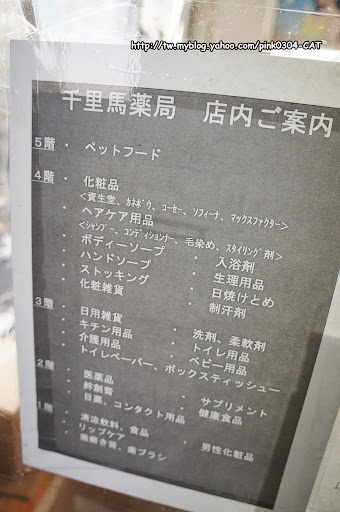 http://tw.myblog.yahoo.com/pink0304-CAT
千里馬薬局 店内ご案内
5階 ・ ペットフード
4階 ・ 化粧品
<資生堂、カネボウ、コーセー、ソフィーナ、マックスファクター>
・ ヘアケア用品
<シャンプー、コンディショナー、毛染め、スタイリング剤>
・ ボディーソープ ・ 入浴剤
・ ハンドソープ ・ 生理用品
・ ストッキング ・ 日焼けとめ
・ 化粧雑貨 ・ 制汗剤
3階 ・ 日用雑貨 ・ 洗剤、柔軟剤
・ キチン用品 ・ トイレ用品
・ 介護用品 ・ ベビー用品
・ トイレペーパー、ボックスティッシュー
2階 ・ 医薬品 ・ サプリメント
・ 絆創膏 ・ 健康食品
・ 目薬、コンタクト用品
1階 ・ 清涼飲料、食品 ・ 男性化粧品
・ リップケア
・ 歯磨き膏、歯ブラシ